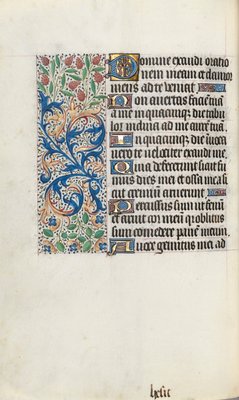 Domine exaudi oratio
nem meam et clamor
meus ad te veniat
Non avertas faciem tuā
a me in quacūque die tribu
lor inclina ad me aurē tuā.
In quacūque die īvoca
vero te velociter exaudi me.
Quia defecerunt sicut fu
mus dies mei et ossa mea si
cut cremiū aruerunt
Percussus sum ut fenū
et aruit cor meū q oblitus
sum comedere panē meum.
A voce gemitus mei ad